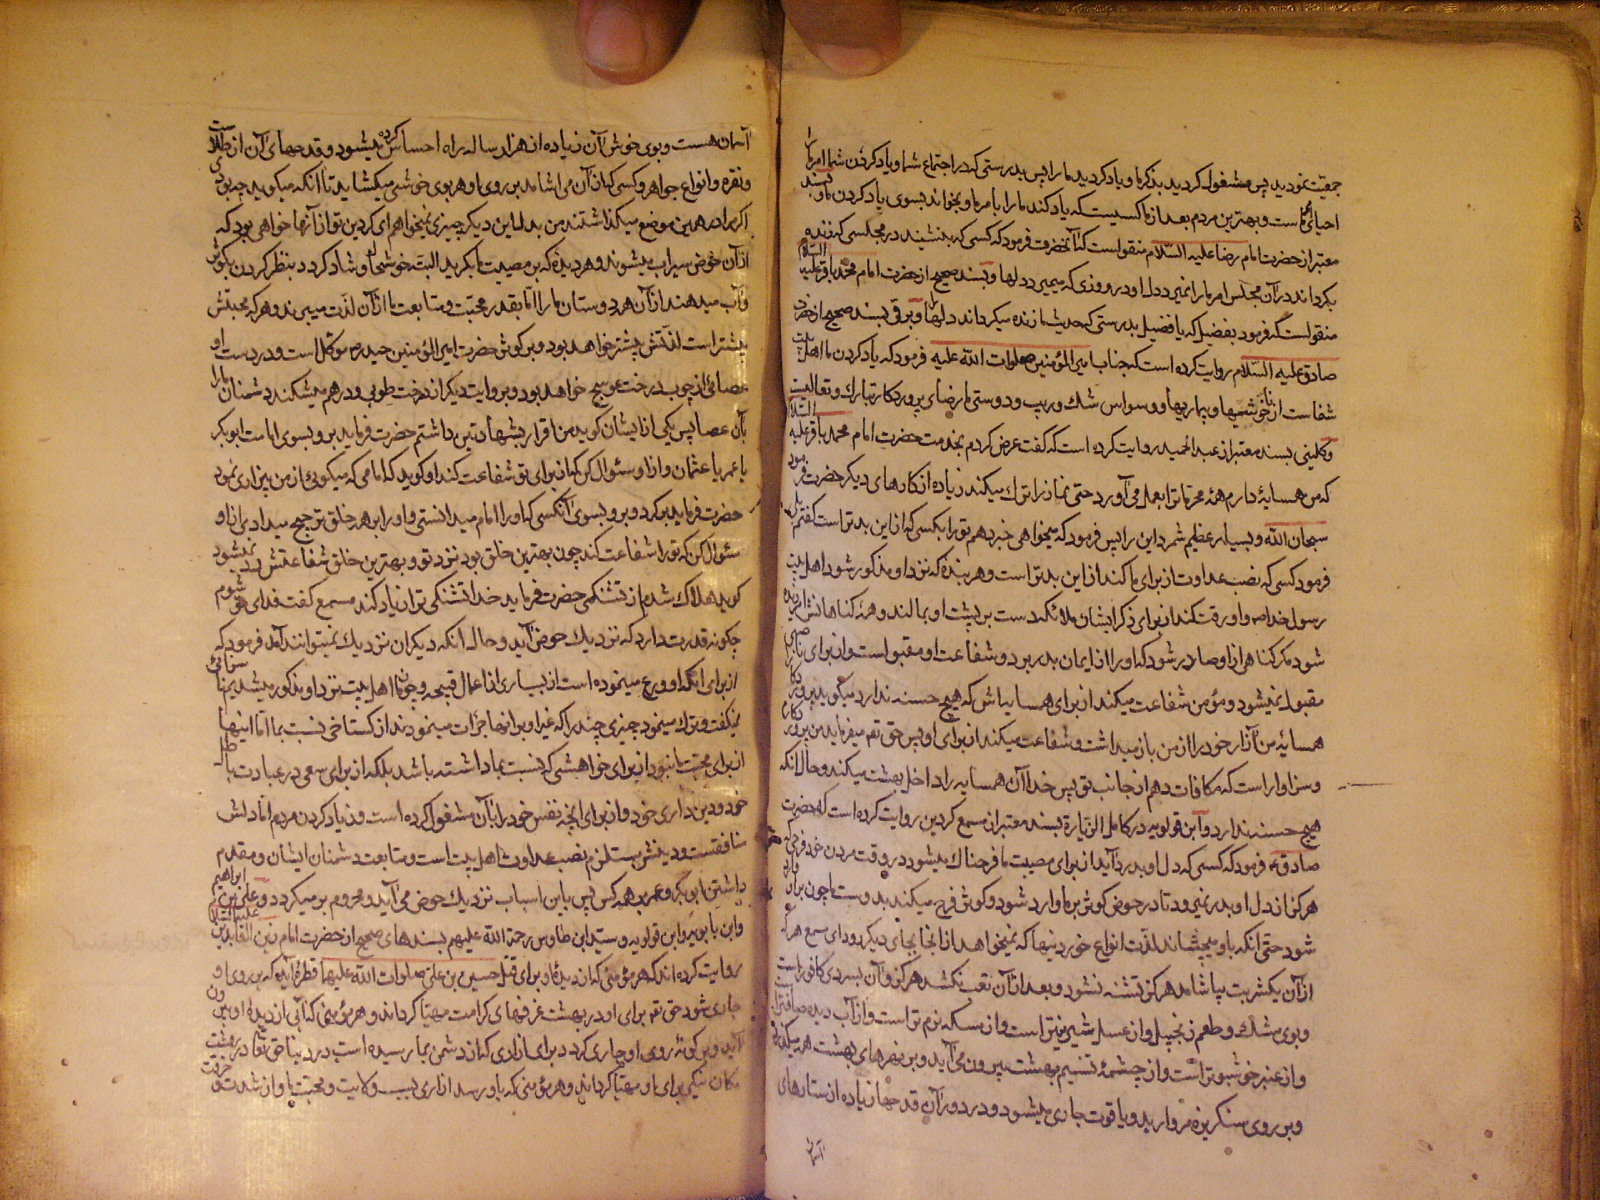 جمعیت نمودید پس مشغول کردید بذکر ما و یاد کردید ما را پس بدرستی که در اجتماع شما و یاد کردن شما امر ما را
احیای ما است و بهترین مردم بعد از ما کسیست که یاد کند ما را بامر ما و بخواند بسوی یاد کردن ما و بسند
معتبر از حضرت امام رضا علیه السلام منقولست که آنحضرت فرمود که کسی که بنشیند در مجلسی که زنده
بکرداند در آن مجلس امر ما را نمیرد دل او در روزی که میمیرد دلها و بسند صحیح از حضرت امام محمد باقر علیه السلام
منقولست که فرمود بفضیل که یا فضیل بدرستی که حدیث ما زنده میکرداند دلها را و برقی بسند صحیح از حضرت
صادق علیه السلام روایت کرده است که جناب امیر المؤمنین صلوات الله علیه فرمود که یاد کردن ما اهل بیت
شفا است از ناخوشیها و بیماریها و وسواس شک و ریب و دوستی ما رضای پروردکار تبارک و تعالیست
و کلینی بسند معتبر از عبد الحمید روایت کرده است که گفت عرض کردم بخدمت حضرت امام محمد باقر علیه السلام
که من همسایهٔ دارم همهٔ محرمات را بعمل می آورد حتی نماز را ترک میکند زیاده از کارهای دیکر حضرت فرمود
سبحان الله و بسیار عظیم شمرد این را پس فرمود که میخواهی خبر دهم تو را بکسی که از این بدتر است کفتم بلی
فرمود کسی که نصب عداوت از برای ما کند از این بدتر است و هر بنده که نزد او مذکور شود اهل بیت
رسول خدا ص و او رقت کند از برای ذکر ایشان ملائکه دست بر پشت او بمالند و همهٔ کناهانش امرزیده
شود مکر کناهی از او صادر شود که او را از ایمان بدر برد و شفاعت او مقبولست و از برای ناصبی
مقبول نمیشود و مؤمن شفاعت میکند از برای همسایه اش که هیچ حسنه ندارد میکوید پروردکارا
همسایهٔ من آزار خود را از من باز میداشت و شفاعت میکند از برای او پس حق تعم میفرماید من پروردکار توام
و سزاوار است که مکافات دهم از جانب تو پس خدا آن همسایه را داخل بهشت میکند و حال آنکه
هیچ حسنه ندارد و ابن قولویه در کامل الزیارة بسند معتبر از مسمع کردین روایت کرده است که حضرت
صادق ع فرمود که کسی که دل او بدرد آید از برای مصیبت ما فرحناک میشود در وقت مردن خود فرحی که
هرکز از دل او بدر نمیرود تا در حوض کوثر بر ما وارد شود و کوثر فرح میکند بدوست ما چون بران وارد
شود حتی آنکه باو میچشاند لذت انواع خوردنیها که نمیخواهد از انجا بجای دیکر رود ای مسمع هر که
از آن یکشربت بیاشامد هرکز تشنه نشود و بعد از آن تعب نکشد هرکز و آن بسردی کافور است
و بوی مشک و طعم زنجبیل و از عسل شیرینتر است و از مسکه نرم تر است و از آب دیده صافتر است
و از عنبر خوشبو تر است و از چشمهٔ تسنیم بهشت بیرون می آید و بر نهرهای بهشت همه میکذرد
و بر روی سنکریزه مروارید و یاقوت جاری میشود و در دور آن قدحها زیاده از ستارهای
آسمان
آسمان هست و بوی خوش آن زیاده از هزار ساله راه احساس کرده میشود و قدحهای آن از طلا است
و نقره و انواع جواهر و کسی که از آن می اشامد بر روی او هر بوی خوشی میکشاید تا انکه میکوید چه بودی
اکر مرا در همین موضع میکذاشتند من بدل این دیکر چیزی نمیخواهم ای کردین تو از آنها خواهی بود که
از آن حوض سیراب میشوند و هر دیدهٔ که بر مصیبت ما بکرید البته خوشحال و شاد کردد بنظر کردن بکوثر
و آب میدهند از آن هر دوستان ما را اما بقدر محبت و متابعت ما از آن لذت میبرند و هر که محبتش
بیشتر است لذتش بیشتر خواهد بود و بر کوثر حضرت امیر المؤمنین حیدر ع موکل است و در دست او
عصائی از چوب درخت عوسج خواهد بود و بروایت دیکر از درخت طوبی و در هم میشکند دشمنان ما را
بآن عصا پس یکی از ایشان کوید من اقرار بشهادتین داشتم حضرت فرماید برو بسوی امامت ابوبکر
یا عمر یا عثمان و از او سئوال کن که از برای تو شفاعت کند او کوید که امامی که میکوئی از من بیزاری نمود
حضرت فرماید برکرد و برو بسوی آنکسی که او را امام میدانستی و او را بر همه خلق ترجیح میدادی از او
سئوال کن که تو را شفاعت کند چون بهترین خلق بود نزد تو و بهترین خلق شفاعتش رد نمیشود
کوید هلاک شدم از تشنکی حضرت فرماید خدا تشنکی ترا زیاد کند مسمع کفت فدای تو شوم
چکونه قدرت دارد که نزدیک حوض آید و حال آنکه دیکران نزدیک نمیتوانند آمد فرمود که
از برای انکه او ورع مینموده است از بسیاری از اعمال قبیحه و چون ما اهل بیت نزد او مذکور میشدیم ناسزائی
نمیکفت و ترک مینمود چیزی چند را که غیر او بر انها جرات مینمودند از کستاخی نسبت بما اما اینها
از برای محبت ما نبود از برای خواهشی که نسبت بما داشته باشد بلکه از برای سعی در عبادت باطل
خود و دین داری خود و از برای انچه نفس خود را بان مشغول کرده است و زیاد کردن مردم اما دلش
منافقست و دینش مستلزم نصب عداوت ما اهل بیت است و متابعت دشمنان ایشان و مقدم
داشتن ابوبکر و عمر بر همه کس پس باین اسباب نزدیک حوض می آید و محروم بر میکردد و علی بن ابراهیم
و ابن بابویه و ابن قولویه و سید ابن طاوس رحمة الله علیهم بسندهای صحیح از حضرت امام زین العابدین علیه السلام
روایت کرده اند که هر مؤمنی که از دیدهٔ او برای قتل حسین بن علی صلوات الله علیهما قطرهٔ آید که بر روی او
جاری شود حق تعم برای او در بهشت غرفهای کرامت مهیا کرداند و هر مؤمنی که آبی از دیده او بیرون
آید و بر کونه روی او جاری کردد برای ازاری که از دشمن بما رسیده است در دنیا حق تعم او را در بهشت
مکان نیکی برای او مهیا کرداند و هر مؤمنی که باو رسد ازاری بسبب ولایت و محبت ما و از شدت